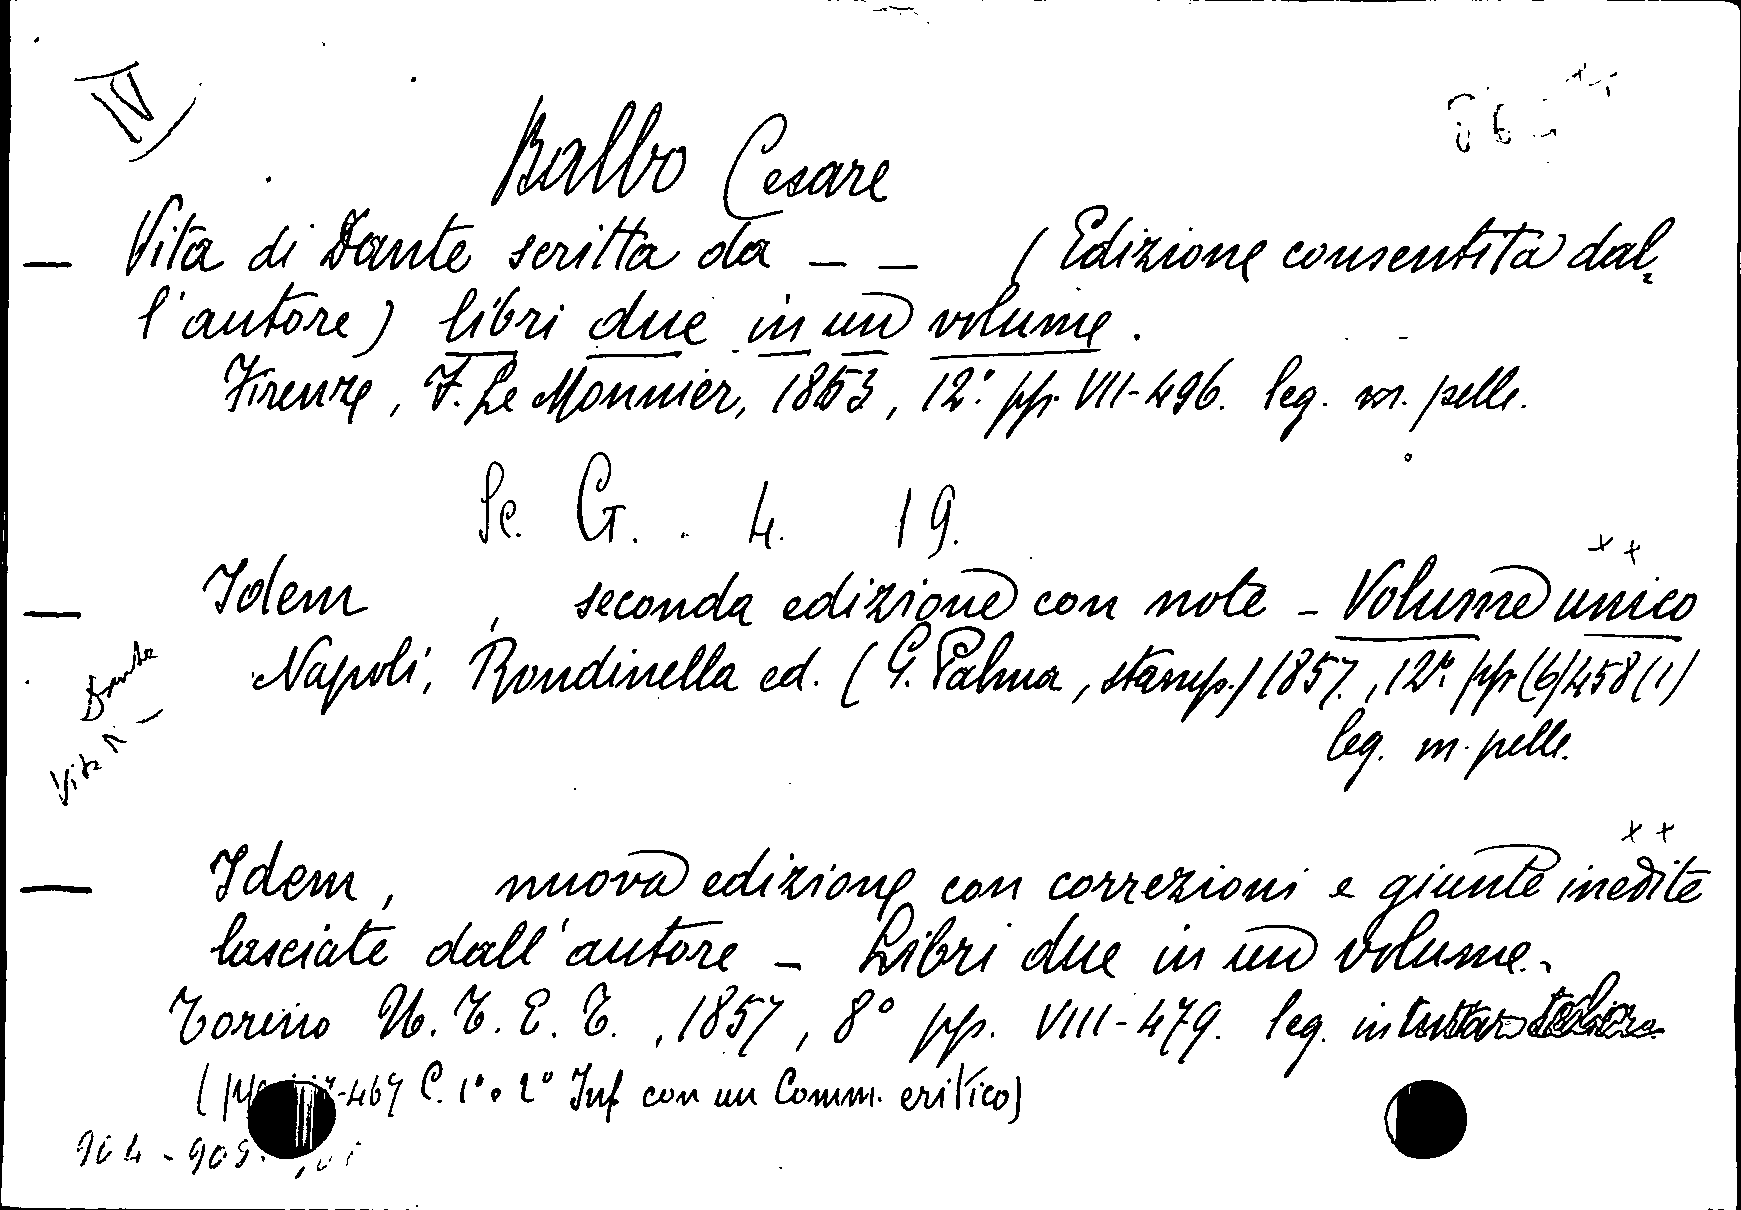 IV
Balbo Cesare
— Vita di Dante scritta da – – (Edizione consentita dal-
l'autore) libri due in un volume.
Firenze, F. Le Monnier, 1853, 12.° pp. VII-496. leg. m. pelle.
Sc. G. . 4. 19.
++
— Idem , seconda edizione con note – Volume unico
Napoli, Rondinella ed. (G. Palma, stamp.) 1857., 12.° pp. (6) 458 (1)
leg. m. pelle.
Dante
Vita
++
— Idem, nuova edizione con correzioni e giunte inedite
lasciate dall'autore – Libri due in un volume.
Torino U.T.E.T., 1857, 8° pp. VIII-479. leg. in tutta
-467 C. 1° e 2° Inf con un Comm. critico)
904 - 905